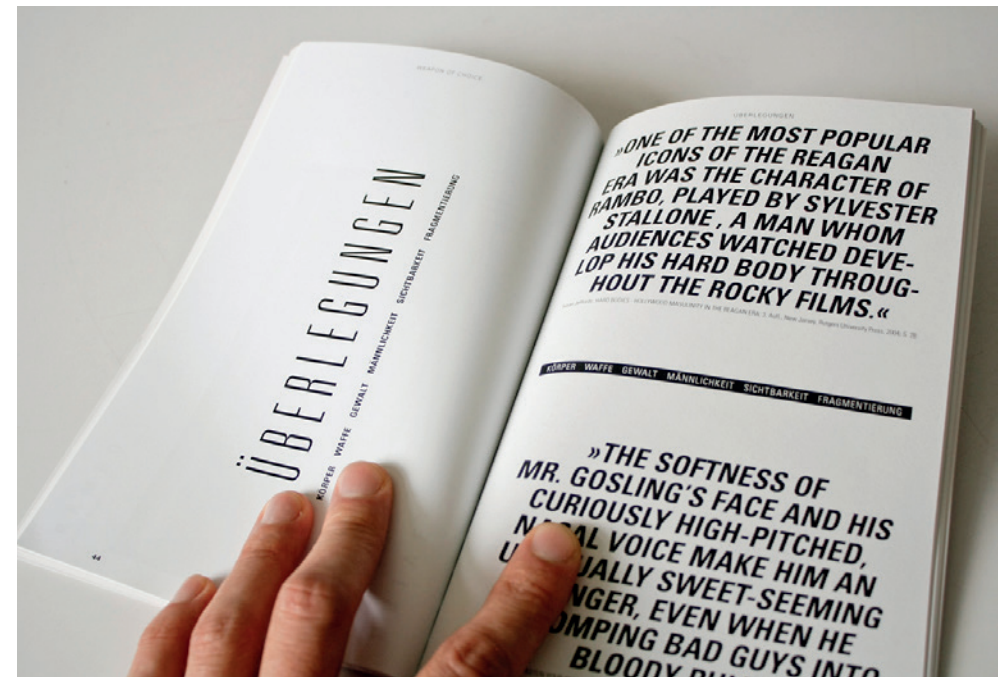 WEAPON OF CHOICE
ÜBERLEGUNGEN
KÖRPER WAFFE GEWALT MÄNNLICHKEIT SICHTBARKEIT FRAGMENTIERUNG
44
ÜBERLEGUNGEN
»ONE OF THE MOST POPULAR
ICONS OF THE REAGAN
ERA WAS THE CHARACTER OF
RAMBO, PLAYED BY SYLVESTER
STALLONE , A MAN WHOM
AUDIENCES WATCHED DEVE-
LOP HIS HARD BODY THROUG-
HOUT THE ROCKY FILMS.«
HARD BODIES - HOLLYWOOD MASCULINITY IN THE REAGAN ERA, 2. Aufl., New Jersey, Rutgers University Press, 2004, S.
KÖRPER WAFFE GEWALT MÄNNLICHKEIT SICHTBARKEIT FRAGMENTIERUNG
»THE SOFTNESS OF
MR. GOSLING'S FACE AND HIS
CURIOUSLY HIGH-PITCHED,
VOICE MAKE HIM AN
SWEET-SEEMING
EVEN WHEN HE
BAD GUYS INTO
BLOODY